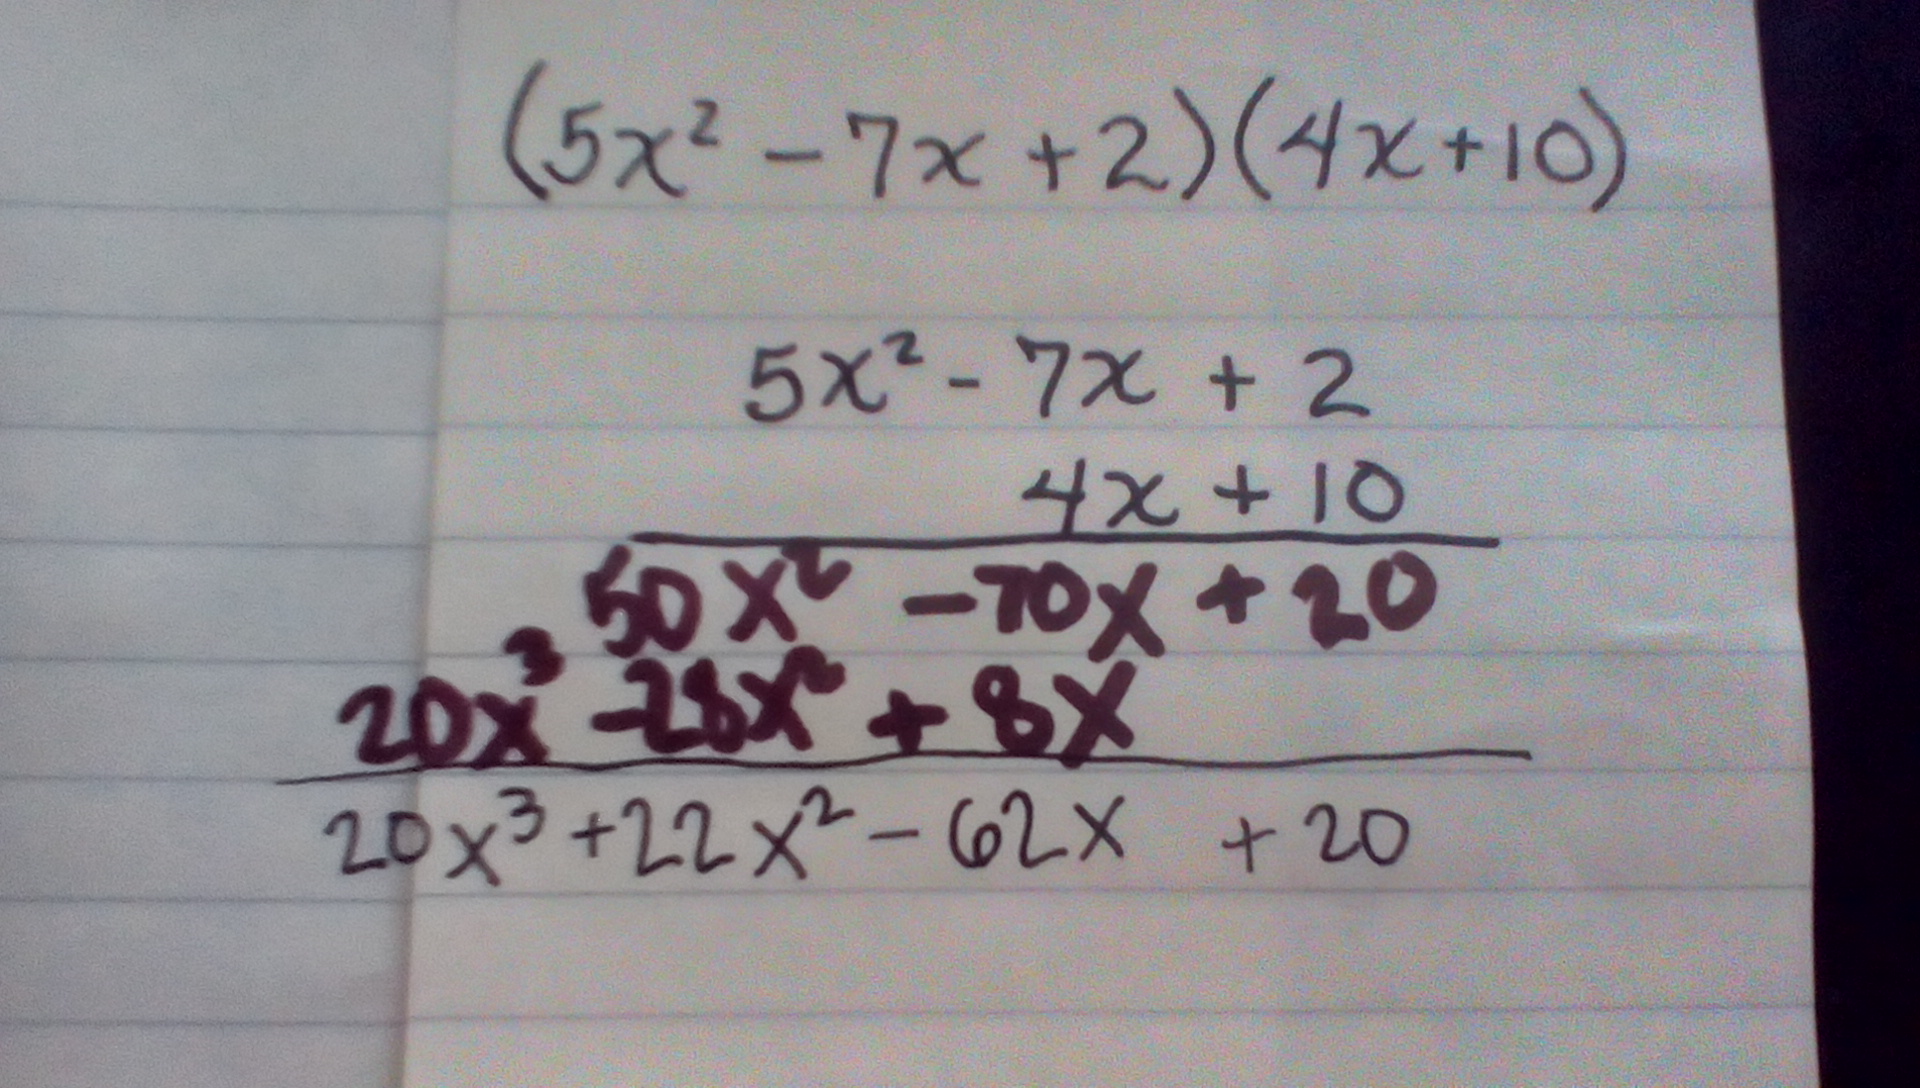 (5x² - 7x + 2)(4x + 10)
5x² - 7x + 2
4x + 10
50x² - 70x + 20
20x³ - 28x² + 8x
20x³ + 22x² - 62x + 20